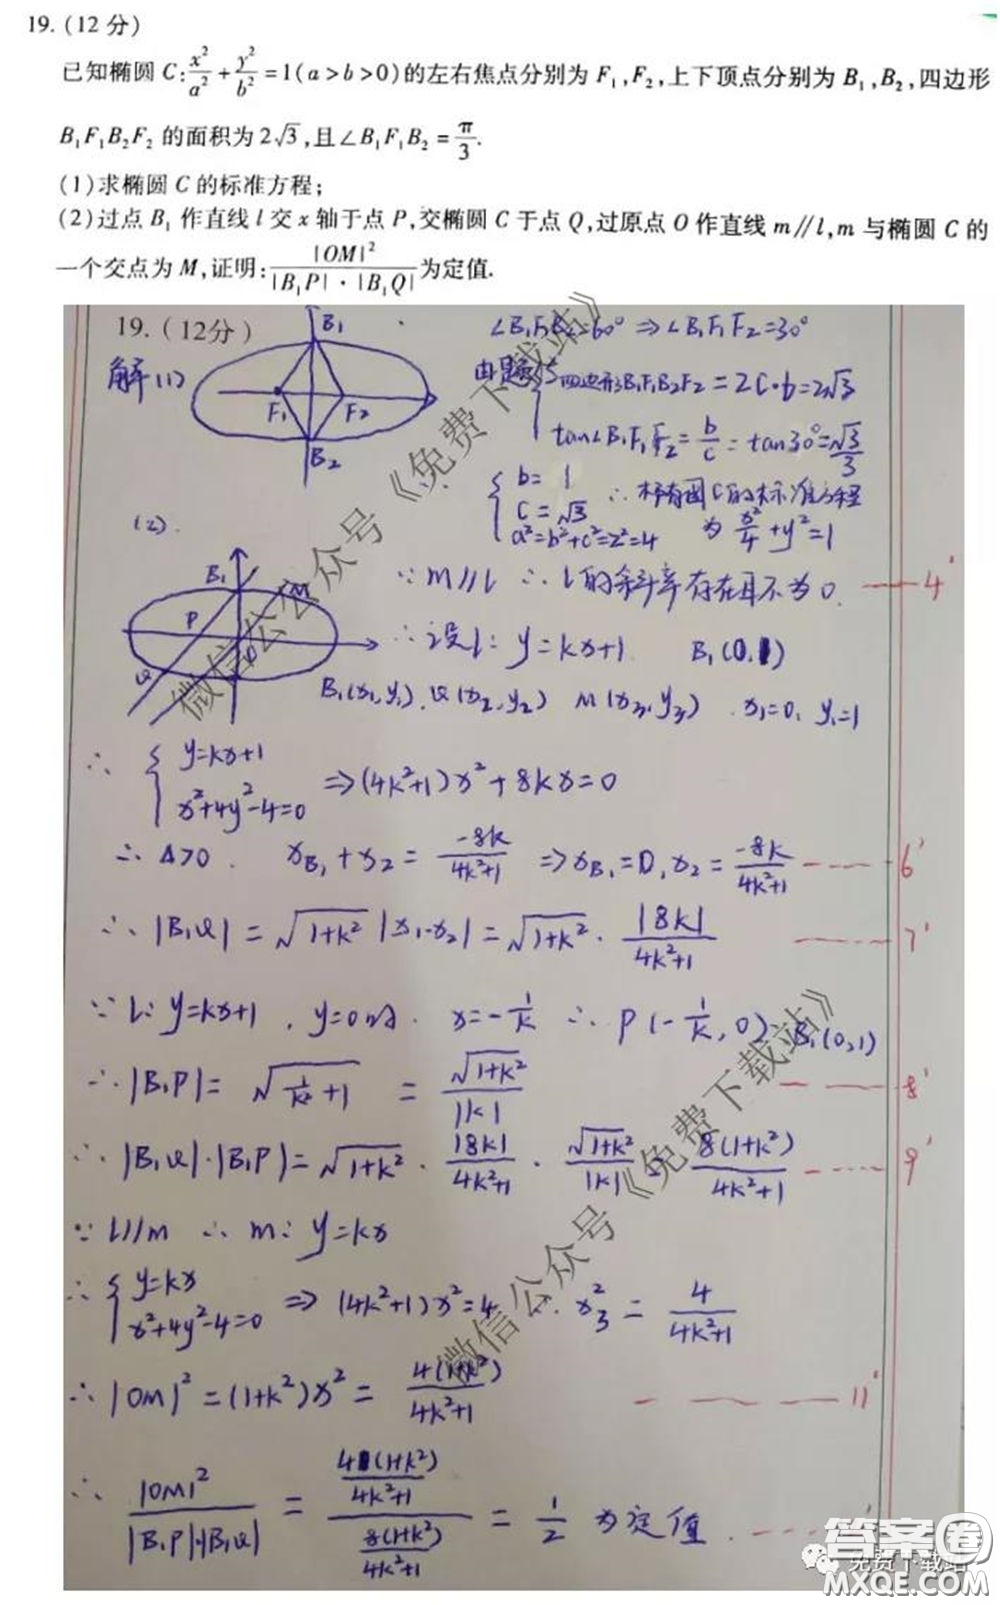 19.(12分)
已知椭圆 C:x²/a²+y²/b²=1(a>b>0)的左右焦点分别为 F₁,F₂,上下顶点分别为 B₁,B₂,四边形
B₁F₁B₂F₂ 的面积为 2√3,且∠B₁F₁B₂=π/3.
(1)求椭圆 C 的标准方程;
(2)过点 B₁ 作直线 l 交 x 轴于点 P,交椭圆 C 于点 Q,过原点 O 作直线 m∥l,m 与椭圆 C 的
一个交点为 M,证明:|OM|²/(|B₁P|·|B₁Q|)为定值.
19.(12分)
解(1)
B₁
F₁ F₂
B₂
∠B₁F₁B₂=60° ⇒∠B₁F₁F₂=30°
四边形B₁F₁B₂F₂=2c·b=2√3
tan∠B₁F₁F₂=b/c=tan30°=√3/3
b=1
c=√3
a²=b²+c²=2²=4
∴椭圆C的标准方程
为 x²/4+y²=1
(2).
B₁ M
P O
Q
∵m∥l ∴l的斜率存在且不为0. 4'
∴设l: y=kx+1 B₁(0,1)
B₁(x₁,y₁).Q(x₂,y₂) M(x₃,y₃) . x₁=0. y₁=1
∴ { y=kx+1
x²+4y²-4=0 ⇒(4k²+1)x²+8kx=0
∴Δ>0. x_B₁+x₂=-8k/(4k²+1) ⇒x_B₁=0,x₂=-8k/(4k²+1) 6'
∴|B₁Q|=√(1+k²)|x₁-x₂|=√(1+k²)·|8k|/(4k²+1) 7'
∵l: y=kx+1, y=0时. x=-1/k ∴P(-1/k,0) B₁(0,1)
∴|B₁P|=√(1/k²+1)=√(1+k²)/|k| 8'
∴|B₁Q|·|B₁P|=√(1+k²)·|8k|/(4k²+1)·√(1+k²)/|k|=8(1+k²)/(4k²+1) 9'
∵l//m ∴m: y=kx
∴ { y=kx
x²+4y²-4=0 ⇒(4k²+1)x²=4 ∴x₃²=4/(4k²+1)
∴|OM|²=(1+k²)x²=4(1+k²)/(4k²+1) 11'
∴|OM|²/(|B₁P|·|B₁Q|)=(4(1+k²)/(4k²+1))/(8(1+k²)/(4k²+1))=1/2 为定值.
微信公众号《免费下载站》
微信公众号《免费下载站》
免费下载站
答案圈
MXQE.COM